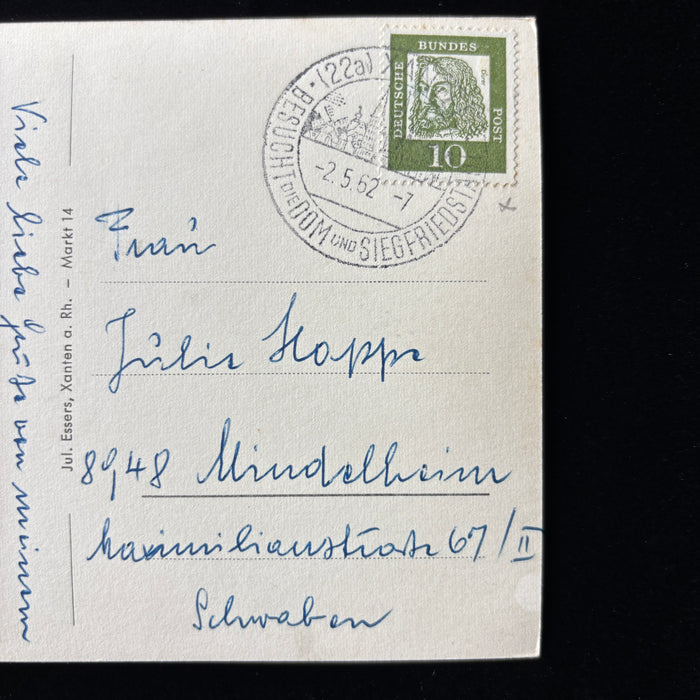 BUNDES
DEUTSCHE
POST
10
(22a) X
BESUCHT DIE DOM UND SIEGFRIEDST
-2.5.62 -7
Viele liebe Grüße von meinem
Jul. Essers, Xanten a. Rh. – Markt 14
Frau
Julie Hoppe
8948 Mindelheim
Maximilianstraße 67/II
Schwaben